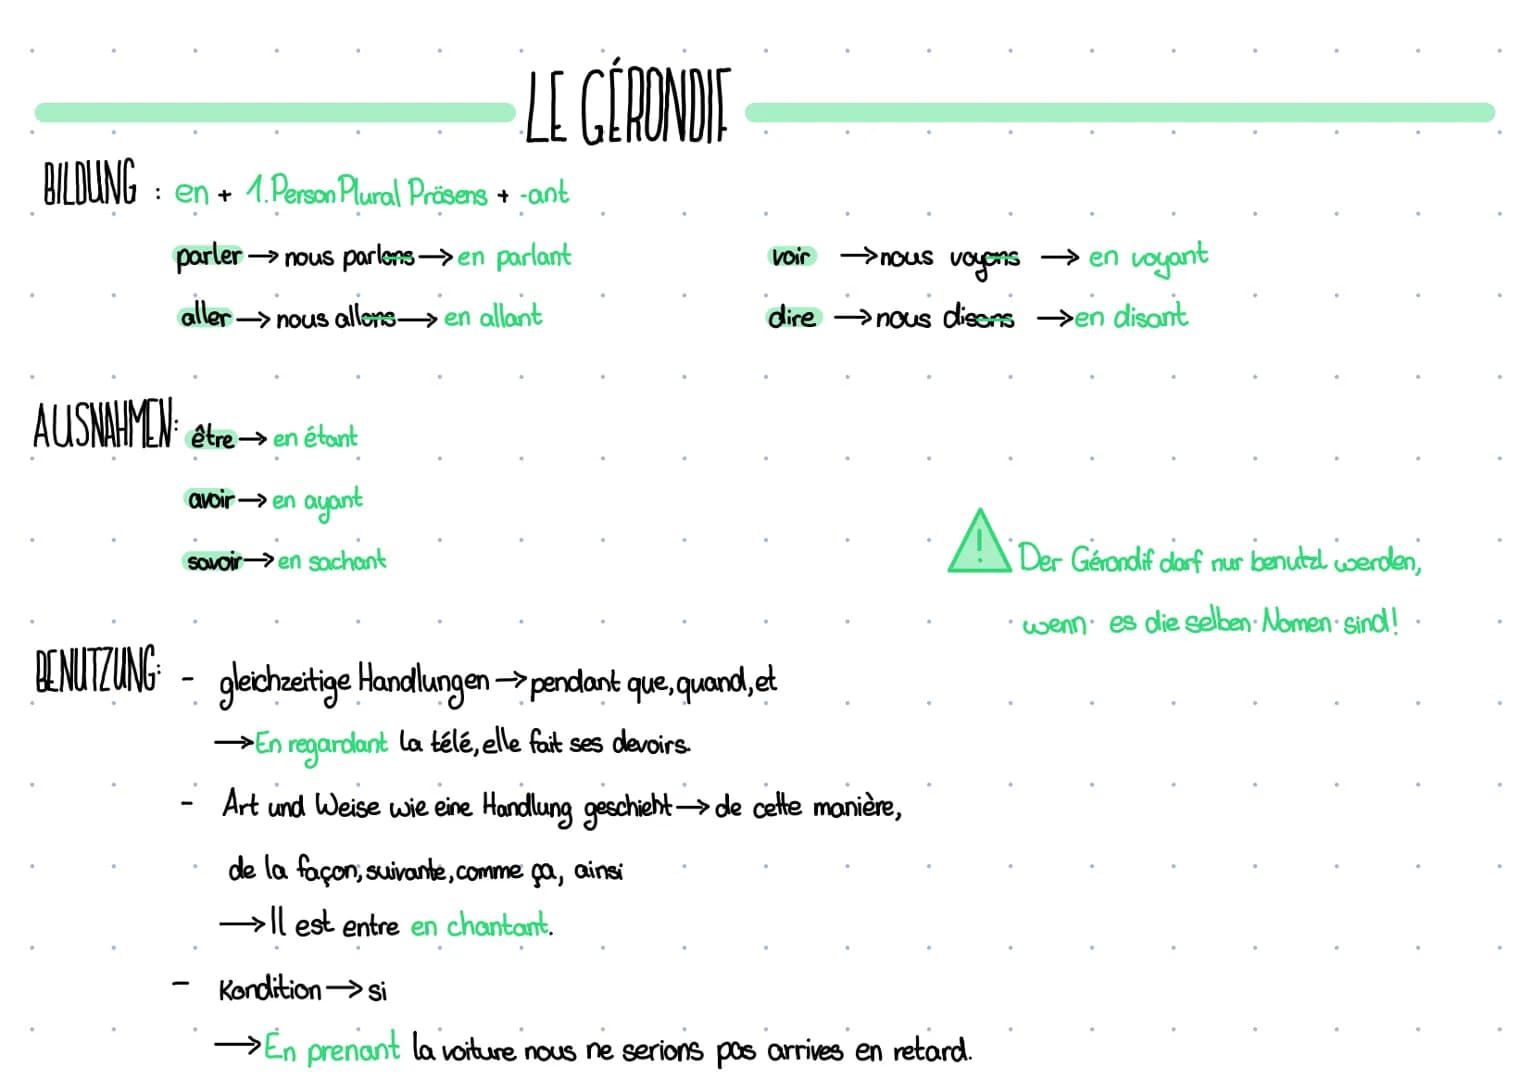 LE GÉRONDIF
BILDUNG : en + 1. Person Plural Präsens + -ant
parler → nous parlons → en parlant
voir → nous voyons → en voyant
aller → nous allons → en allant
dire → nous disons → en disant
AUSNAHMEN: être → en étant
avoir → en ayant
savoir → en sachant
! Der Gérondif darf nur benutzt werden,
wenn es die selben Nomen sind!
BENUTZUNG: - gleichzeitige Handlungen → pendant que, quand, et
→ En regardant la télé, elle fait ses devoirs.
- Art und Weise wie eine Handlung geschieht → de cette manière,
de la façon, suivante, comme ça, ainsi
→ Il est entre en chantant.
- Kondition → si
→ En prenant la voiture nous ne serions pas arrives en retard.